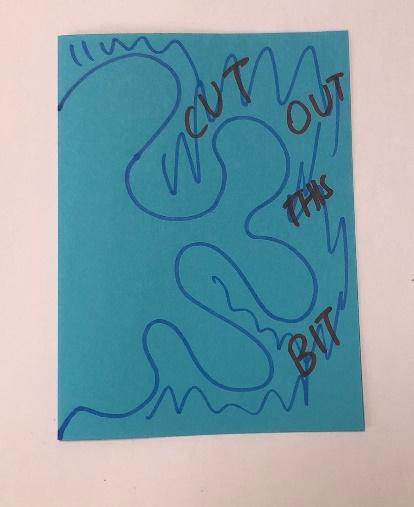 CUT
OUT
THIS
BIT